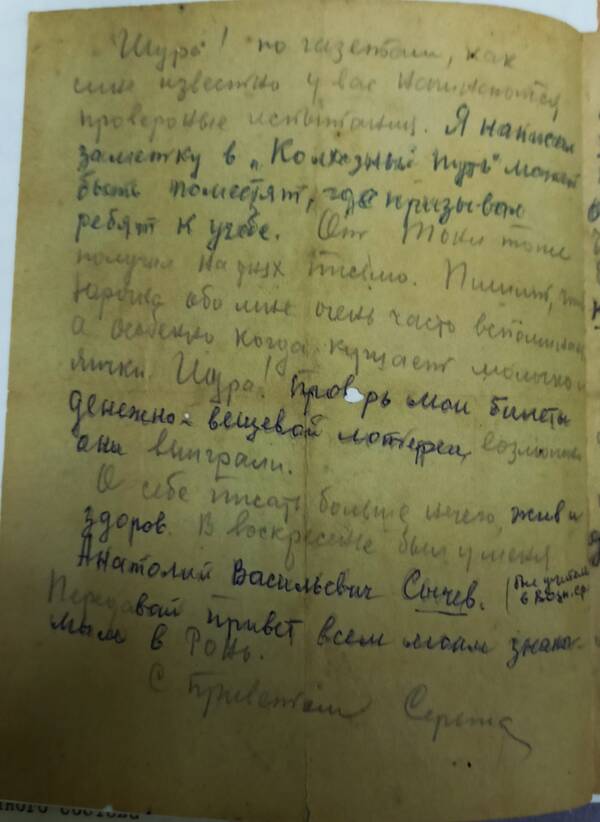 Шура! по газетам, как
мне известно у вас начинаются
провероные испытания. Я написал
заметку в „Колхозный путь" может
быть поместят, где призывал
ребят к учебе. От Токи тоже
получил на днях письмо. Пишит, что
обо мне очень часто вспоминает
а особенно когда кушает молочко и
яички. Шура! Проверь мои билеты
денежной вещевой лотереи, возможно
они выиграли.
О себе писать больше нечего, жив и
здоров. В воскресение был у меня
Анатолий Васильевич Сычев. (был учителем
в
Передавай привет всем моим знако-
мым в
С Приветом Сережа
ного